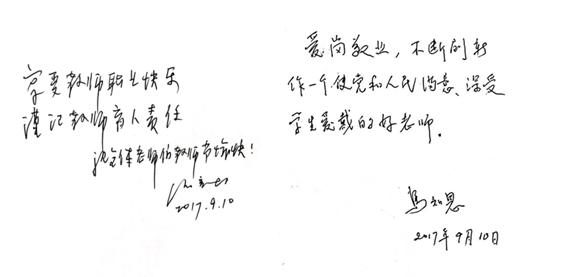 享受教师职业快乐
谨记教师育人责任
祝全体老师们教师节愉快！
2017.9.10
爱岗敬业，不断创新
作一个使党和人民满意、深受
学生爱戴的好老师。
馬知恩
2017年9月10日